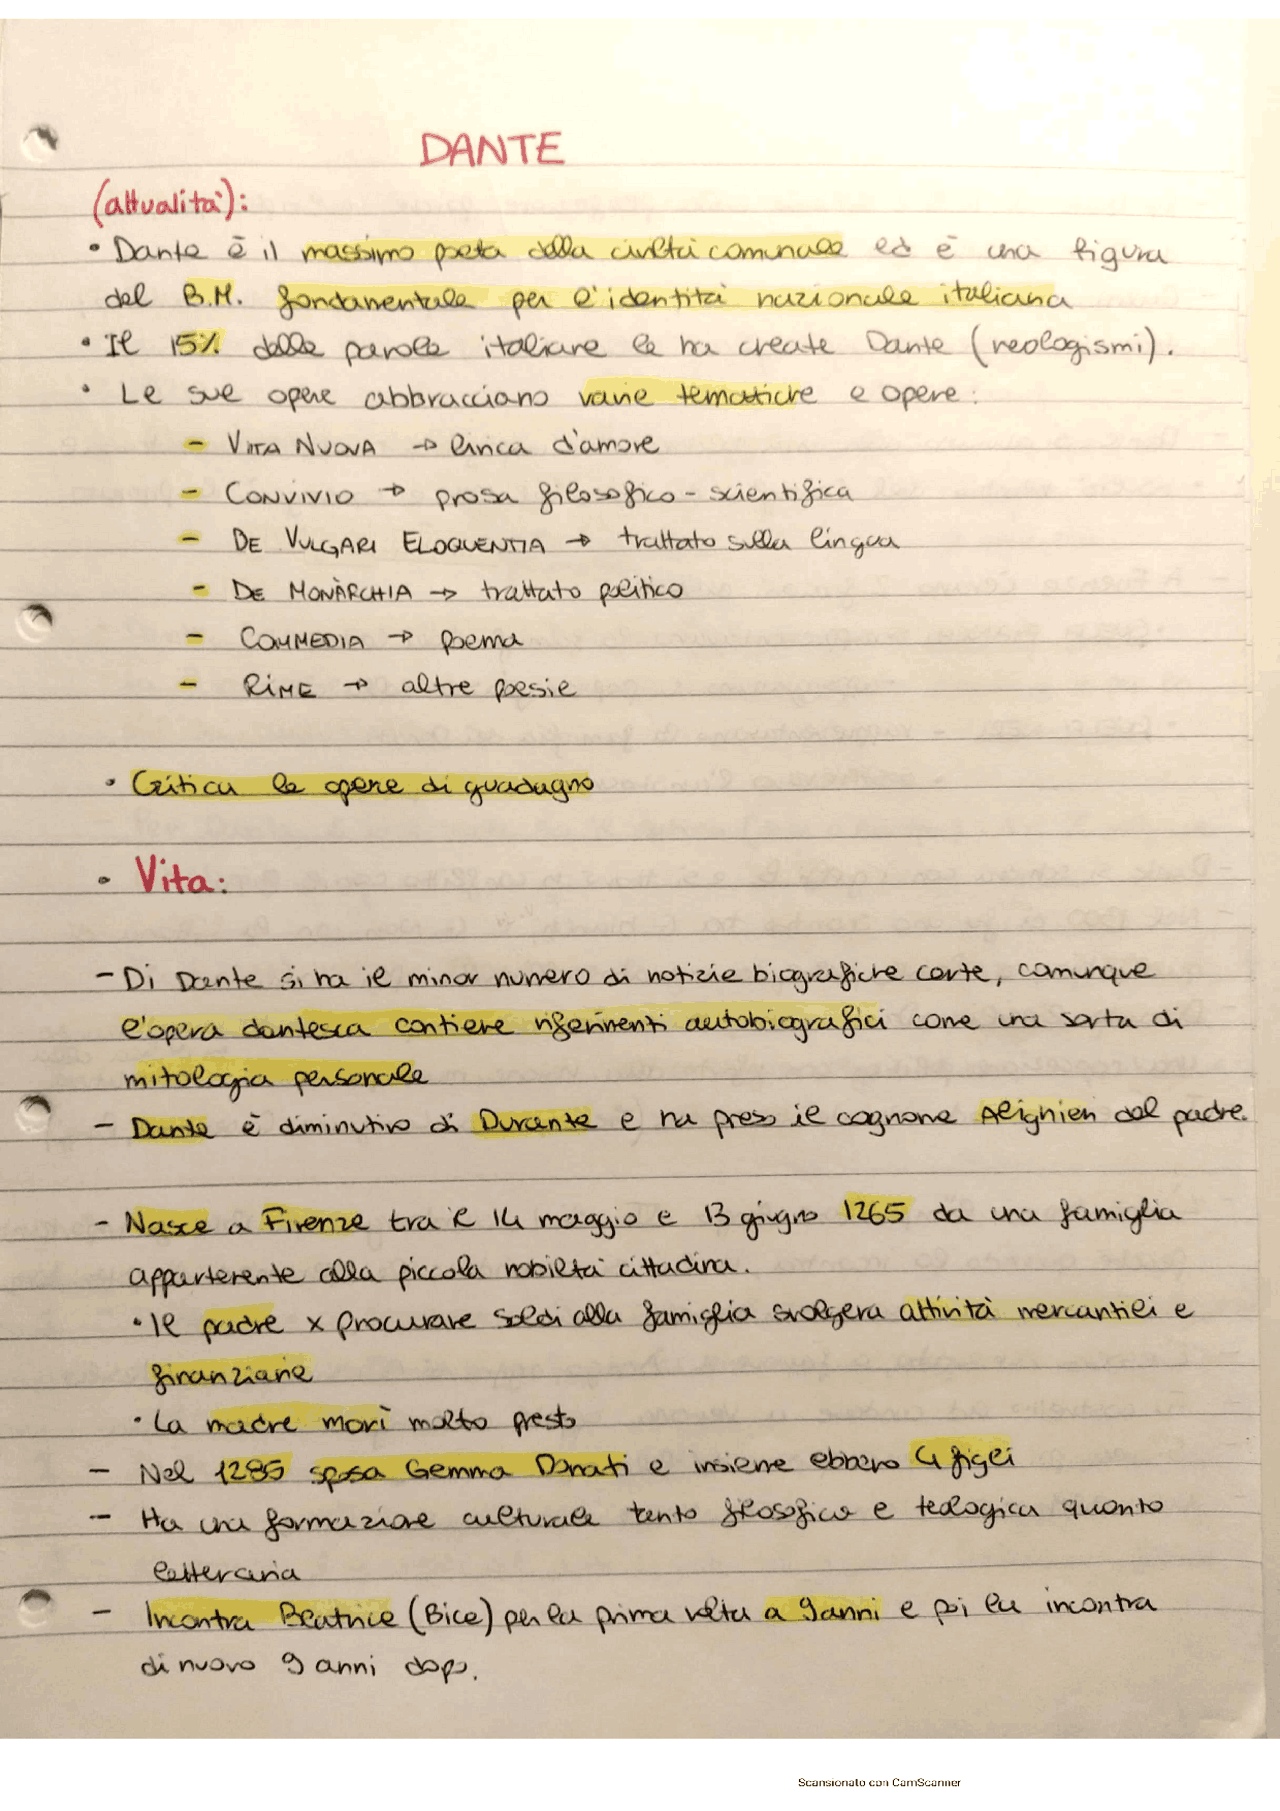 DANTE
(attualità):
• Dante è il massimo poeta della civiltà comunale ed è una figura
del B.M. fondamentale per l'identità nazionale italiana
• Il 15% delle parole italiane le ha create Dante (neologismi).
• Le sue opere abbracciano varie tematiche e opere:
- VITA NUOVA → lirica d'amore
- CONVIVIO → prosa filosofico - scientifica
- DE VULGARI ELOQUENTIA → trattato sulla lingua
- DE MONÀRCHIA → trattato politico
- COMMEDIA → poema
- RIME → altre poesie
• Critica le opere di guadagno
• Vita:
- Di Dante si ha il minor numero di notizie biografiche certe, comunque
l'opera dantesca contiene riferimenti autobiografici come una sorta di
mitologia personale
- Dante è diminutivo di Durante e ha preso il cognome Alighieri dal padre.
- Nasce a Firenze tra il 14 maggio e 13 giugno 1265 da una famiglia
appartenente alla piccola nobiltà cittadina.
• Il padre x procurare soldi alla famiglia svolgeva attività mercantili e
finanziarie
• La madre morì molto presto
- Nel 1285 sposa Gemma Donati e insieme ebbero 4 figli
- Ha una formazione culturale tanto filosofica e teologica quanto
letteraria
- Incontra Beatrice (Bice) per la prima volta a 9 anni e poi la incontra
di nuovo 9 anni dopo.
Scansionato con CamScanner